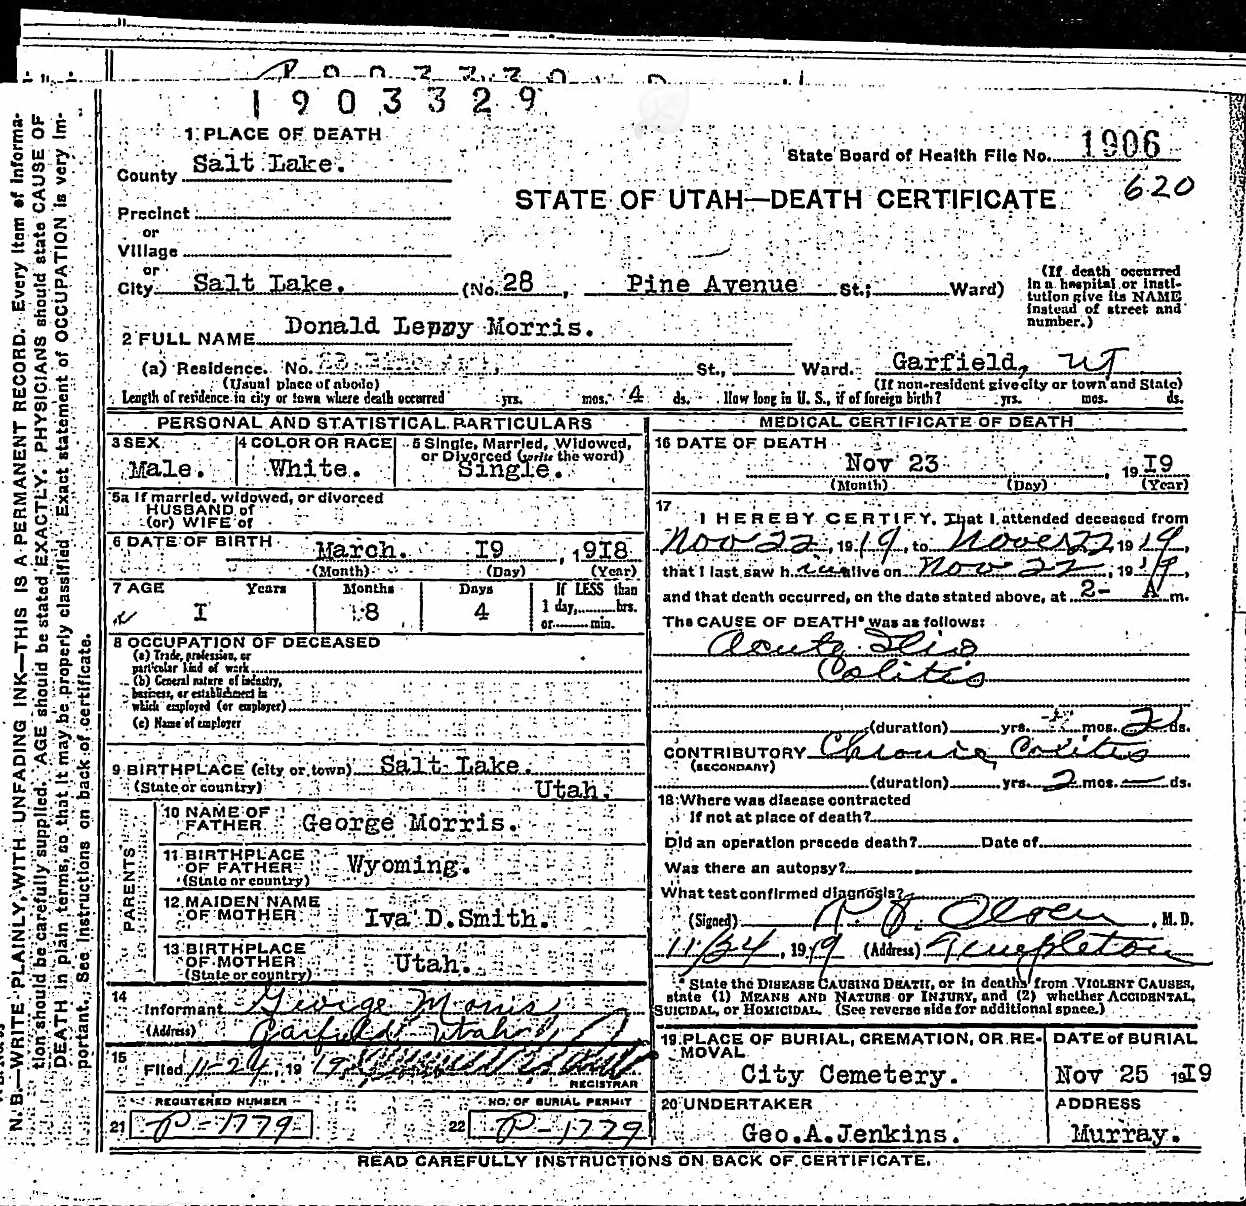 1903329
1 PLACE OF DEATH
State Board of Health File No. 1906
County Salt Lake.
620
STATE OF UTAH—DEATH CERTIFICATE
Precinct
or
Village
or
City Salt Lake. (No. 28, Pine Avenue St.; Ward)
(If death occurred in a hospital or institution give its NAME instead of street and number.)
2 FULL NAME Donald Leppy Morris.
(a) Residence. No. St., Ward. Garfield, UT
(Usual place of abode) (If non-resident give city or town and State)
Length of residence in city or town where death occurred yrs. mos. 4 ds. How long in U. S., if of foreign birth? yrs. mos. ds.
PERSONAL AND STATISTICAL PARTICULARS
3 SEX
Male.
4 COLOR OR RACE
White.
5 Single, Married, Widowed,
or Divorced (write the word)
Single.
5a If married, widowed, or divorced
HUSBAND of
(or) WIFE of
6 DATE OF BIRTH
March. I9 , 1918
(Month) (Day) (Year)
7 AGE Years Months Days If LESS than
I 8 4 1 day, hrs.
or min.
8 OCCUPATION OF DECEASED
(a) Trade, profession, or
particular kind of work
(b) General nature of industry,
business, or establishment in
which employed (or employer)
(c) Name of employer
9 BIRTHPLACE (city or town) Salt Lake.
(State or country) Utah.
PARENTS
10 NAME OF
FATHER George Morris.
11 BIRTHPLACE
OF FATHER Wyoming.
(State or country)
12 MAIDEN NAME
OF MOTHER Iva D.Smith.
13 BIRTHPLACE
OF MOTHER Utah.
(State or country)
14
Informant George Morris
(Address) Garfield Utah
15
Filed 11-24, 1919
REGISTRAR
REGISTERED NUMBER NO. OF BURIAL PERMIT
21 P-1779 22 P-1779
MEDICAL CERTIFICATE OF DEATH
16 DATE OF DEATH
Nov 23 , 19I9
(Month) (Day) (Year)
17
I HEREBY CERTIFY, That I attended deceased from
Nov 22, 1919, to Nov 22 1919,
that I last saw him alive on Nov 22, 1919,
and that death occurred, on the date stated above, at 2- A m.
The CAUSE OF DEATH* was as follows:
Acute Ilio
Colitis
(duration) yrs. mos. 2 ds.
CONTRIBUTORY Chronic Colitis
(SECONDARY)
(duration) yrs. 2 mos. — ds.
18 Where was disease contracted
If not at place of death?
Did an operation precede death? Date of
Was there an autopsy?
What test confirmed diagnosis?
(Signed) Olsen, M.D.
11/24, 1919 (Address) Templeton
* State the DISEASE CAUSING DEATH, or in deaths from VIOLENT CAUSES,
state (1) MEANS AND NATURE OF INJURY, and (2) whether ACCIDENTAL,
SUICIDAL, or HOMICIDAL. (See reverse side for additional space.)
19 PLACE OF BURIAL, CREMATION, OR RE-
MOVAL
City Cemetery.
DATE of BURIAL
Nov 25 19I9
20 UNDERTAKER
Geo.A.Jenkins.
ADDRESS
Murray.
READ CAREFULLY INSTRUCTIONS ON BACK OF CERTIFICATE.
N. B.—WRITE PLAINLY, WITH UNFADING INK—THIS IS A PERMANENT RECORD. Every item of informa-
tion should be carefully supplied. AGE should be stated EXACTLY. PHYSICIANS should state CAUSE OF
DEATH in plain terms, so that it may be properly classified. Exact statement of OCCUPATION is very im-
portant. See instructions on back of certificate.